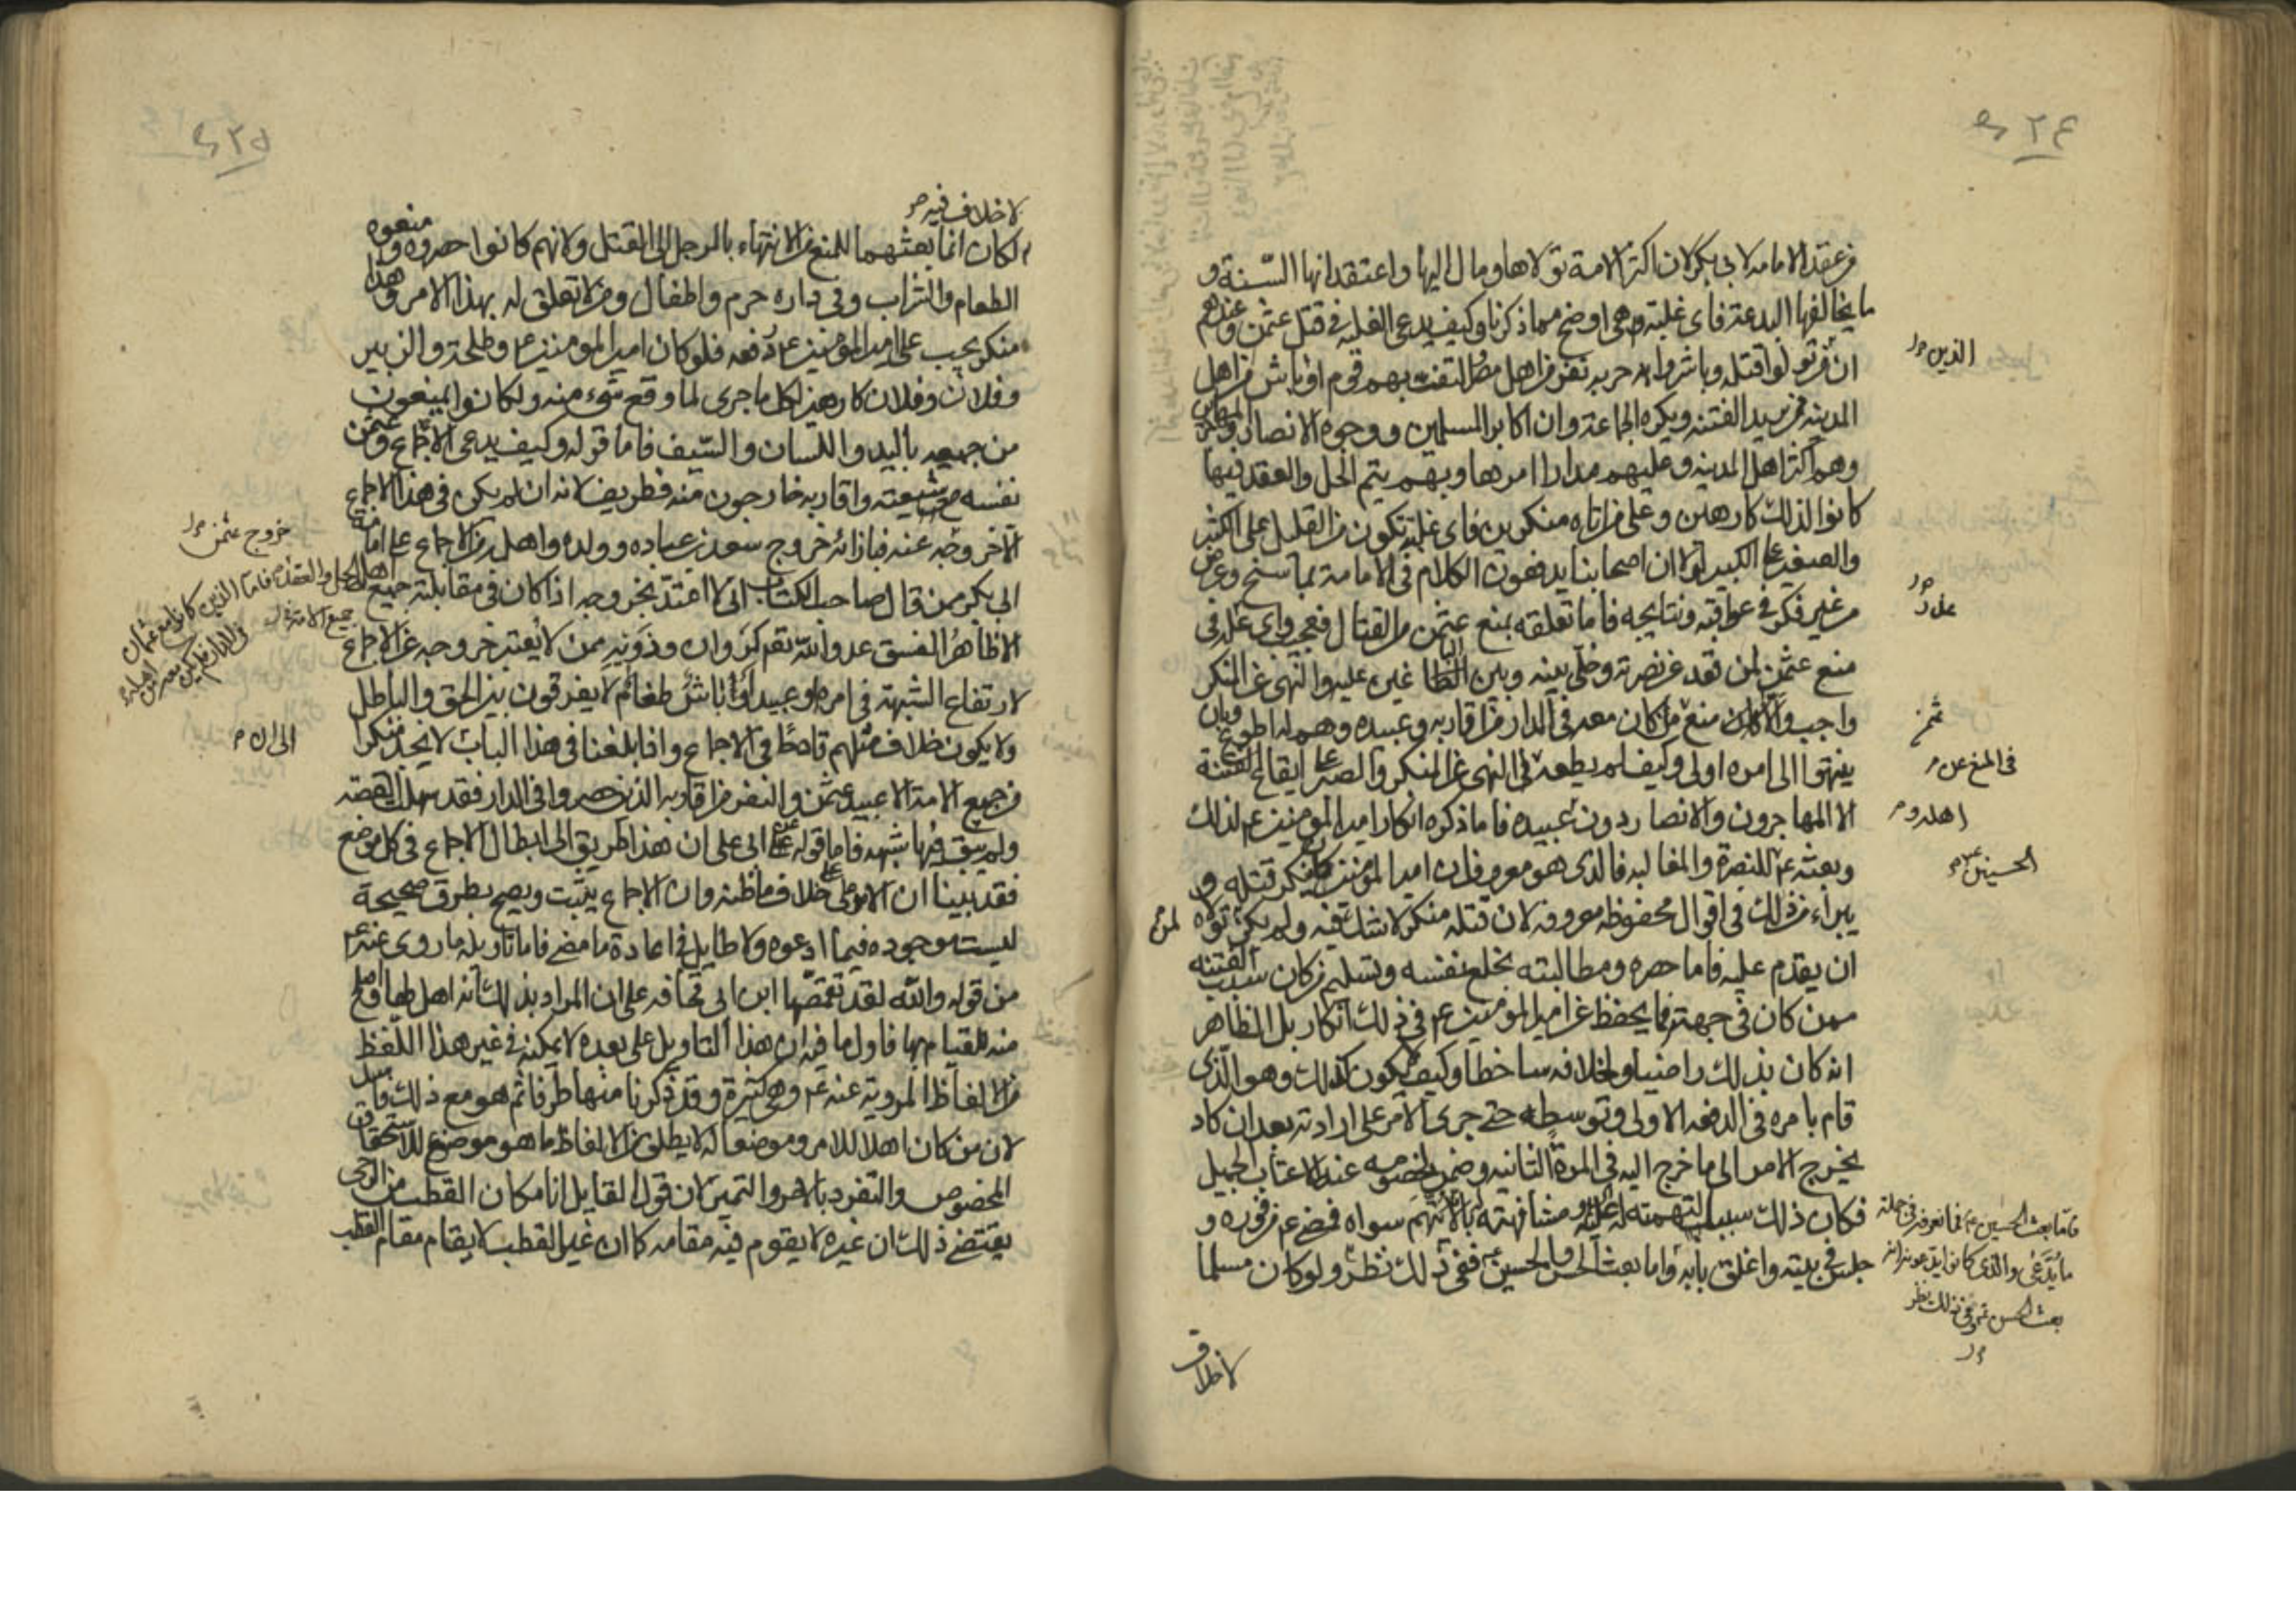 ٤٢٤
من عقد الامامه لابى بكر لان اكثر الامة تولاها ومال اليها واعتقد انها السّنة و
ما يخالفها البدعة فاى غلبته هى اوضح مما ذكرنا وكيف يدعى الغلبه فى قتل عثمن وعندهم
ان تولوا قتله وباشروا حربه نفر من اهل مصر التفت بهم قوم اوباش من اهل
الذين
المدينه ممن يريد الفتنه ويكره الجماعة وان اكابر المسلمين ووجوه الانصار والمهاجرين
وهم اكثر اهل المدينه وعليهم مدار امرها وبهم يتم الحل والعقد فيها
كانوا لذلك كارهين وعلى من اتاه منكرين فاى غلبة تكون من القليل على الكثير
والصغير على الكبير لولا ان اصحابنا يدفعون الكلام فى الامامة بما سنح وعرض
من غير فكر فى عواقبه ونتايجه فاما تعلقه بمنع عثمن من القتال فعجب واى عذر فى
منع عثمن لمن قعد عن نصرته وخلّى بينه وبين الباغين عليه والنهى عن المنكر
واجب والا كان منع من كان معه فى الدار من اقاربه وعبيده وهم له اطوع وبان
ينتهوا الى امره اولى وكيف لم يطعه فى النهى عن المنكر والصبر على ايقاع الفتنة
فى المنع عن
الا المهاجرون والانصار دون عبيده فاما ذكره انكار امير المؤمنين ع لذلك
اهله و
وبعثه للنصرة والمغالبه فالذى هو معروف ان امير المؤمنين ينكر قتله و
الحسنين
يبراء من ذلك فى اقوال محفوظه معروفه لان قتله منكر لا شك فيه ولم يكن تولاه
ان يقدم عليه فاما حصره ومطالبته بخلع نفسه وتسليم من كان سبب الفتنه
ممن كان فى جهته فما يحفظ عن امير المومنين ع فى ذلك انكار بل الظاهر
انه كان بذلك راضيا ولخلافه ساخطا وكيف لا يكون كذلك وهو الذى
قام بامره فى الدفعه الاولى وتوسطه حتى جرى الامر على ارادته بعد ان كاد
يخرج الامر الى ما خرج اليه فى المرة الثانيه وضمن لخصومه عنه الاعتاب الجميل
فكان ذلك سببا لتهمته له ومشافهته بانى لا اتهم سواه فمضى ع من فوره و
جلس فى بيته واغلق بابه واما بعث الحسن والحسين ع ففى ذلك نظر ولو كان مسلما
فاما بعث الحسنين فما نعرفه فى جملة
ما يدّعى والذى كانوا يدعونه انه
بعث الحسن ع وفى ذلك نظر
لا خلاف
٤٢٥
لا خلاف فيه
لكان انما بعثهما للمنع من الانتهاء بالرجل الى القتل ولانهم كانوا حصروه ومنعوه
الطعام والشراب وفى داره حرم واطفال ومن لا تعلق له بهذا الامر وهذا
منكر يجب على امير المومنين ع دفعه فلو كان امير المومنين ع وطلحة والزبير
وفلان وفلان كارهين لكل ما جرى لما وقع شىء منه ولكانوا يمنعون
من جميعه باليد واللسان والسّيف فاما قوله وكيف يدعى الاجماع وعثمن
نفسه وشيعته واقاربه خارجون منه فطريف لانه ان لم يكن فى هذا الاجماع
الا خروجه عنه فبازائه خروج سعد بن عباده وولده واهله من الاجماع على امامة
خروج عثمن
ابى بكر ممن قال صاحب الكتاب انى لا اعتدّ بخروجه اذا كان فى مقابلته جميع
لارتفاع الشبهة فى امره او عبيد اوباش طغام لا يفرقون بين الحق والباطل
ولا يكون خلاف مثلهم قادحا فى الاجماع واذا بلغنا فى هذا الباب لا يخذ منكرا
الى ان
من جميع الامة الا عبيد عثمن والنفر من اقاربه الذين حصروا فى الدار فقد سهل القصه
ولم يبق فيها شبهه فاما قوله عن ابى على ان هذا طريق الى ابطال الاجماع فى كل موضع
فقد بينا ان الامر على خلاف ما ظنه وان الاجماع يثبت ويصح بطرق صحيحة
ليست موجوده فيما ادعوه ولا طايل فى اعادة ما مضى فاما تاويله ما روى عنه ع
من قوله والله لقد تقمّصها ابن ابى قحافه على ان المراد بذلك انه اهل لها واصلح
منه للقيام بها فاول ما فيه ان هذا التاويل على بعده لا يمكنه فى غير هذا اللفظ
من الالفاظ المروية عنه ع وهى كثيرة وقد ذكرنا منها طرفا ثم هو مع ذلك فاسد
لان من كان اهلا للامر وموضعا له لا يطلق من الالفاظ ما هو موضوع للاستحقاق
المخصوص والتفرد بالامر والتميز لان قول القايل انا مكان القطب من الرحى
يقتضى ذلك ان غيره لا يقوم فيه مقامه كما ان غير القطب لا يقام مقام القطب